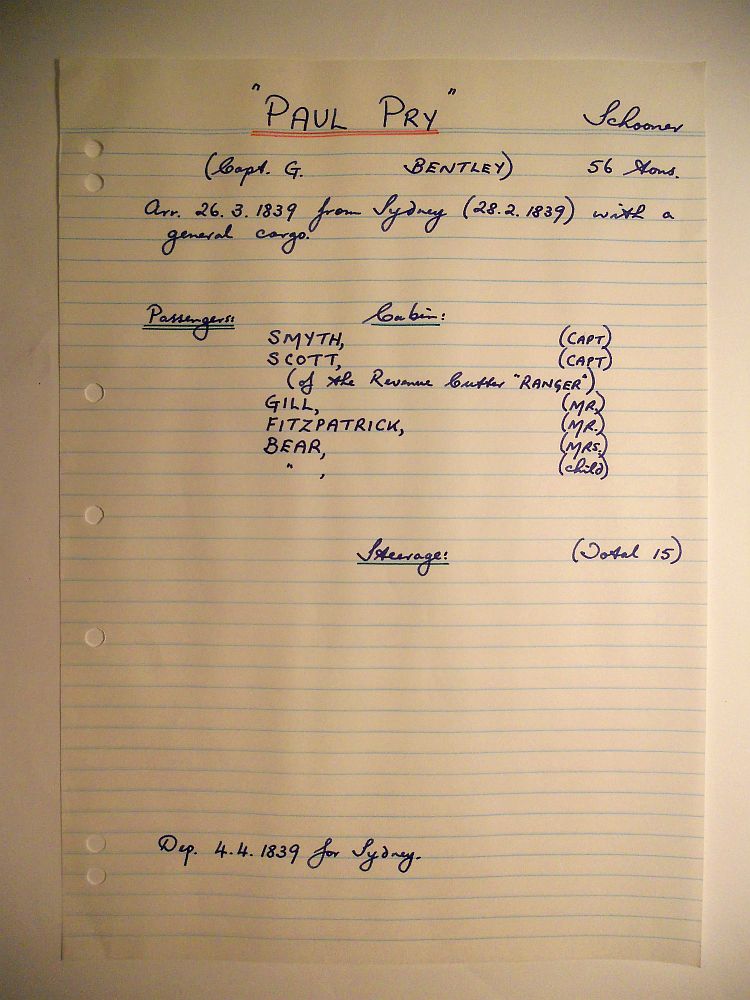 "PAUL PRY" Schooner
(Capt. G. BENTLEY) 56 tons.
Arr. 26.3.1839 from Sydney (28.2.1839) with a
general cargo.
Passengers: Cabin:
SMYTH, (CAPT)
SCOTT, (CAPT)
(of the Revenue Cutter "RANGER")
GILL, (MR.)
FITZPATRICK, (MR.)
BEAR, (MRS.)
" , (child)
Steerage: (Total 15)
Dep. 4.4.1839 for Sydney.